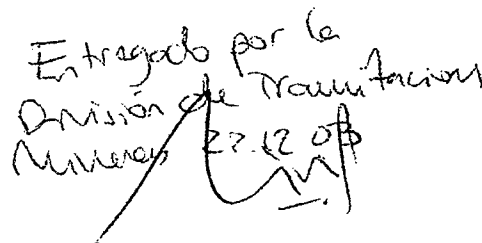 Entregado por la
División de Tramitaciones
Mineras 22.12.03